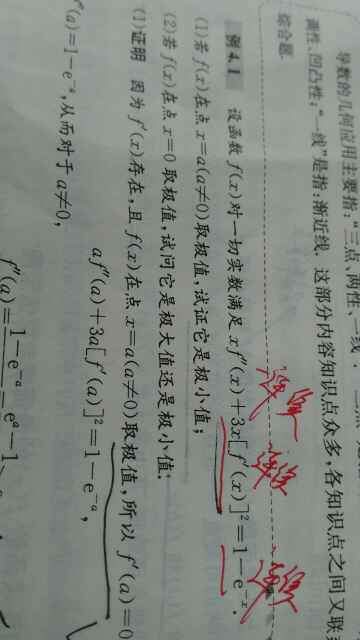 导数的几何应用主要指:“三点、两性、一线”.
调性、凹凸性;“一线”是指:渐近线. 这部分内容知识点众多,各知识点之间又联
综合题.
例4.1 设函数 f(x)对一切实数满足 xf″(x)+3x[f′(x)]²=1−e⁻ˣ.
(1)若 f(x)在点 x=a(a≠0)取极值,试证它是极小值;
(2)若 f(x)在点 x=0 取极值,试问它是极大值还是极小值?
(1)证明 因为 f′(x)存在,且 f(x)在点 x=a(a≠0)取极值,所以 f′(a)=0
af″(a)+3a[f′(a)]²=1−e⁻ᵃ,
f″(a)=1−e⁻ᵃ,从而对于 a≠0,
f″(a)=1−e⁻ᵃ = eᵃ−1
连续 连续 连续